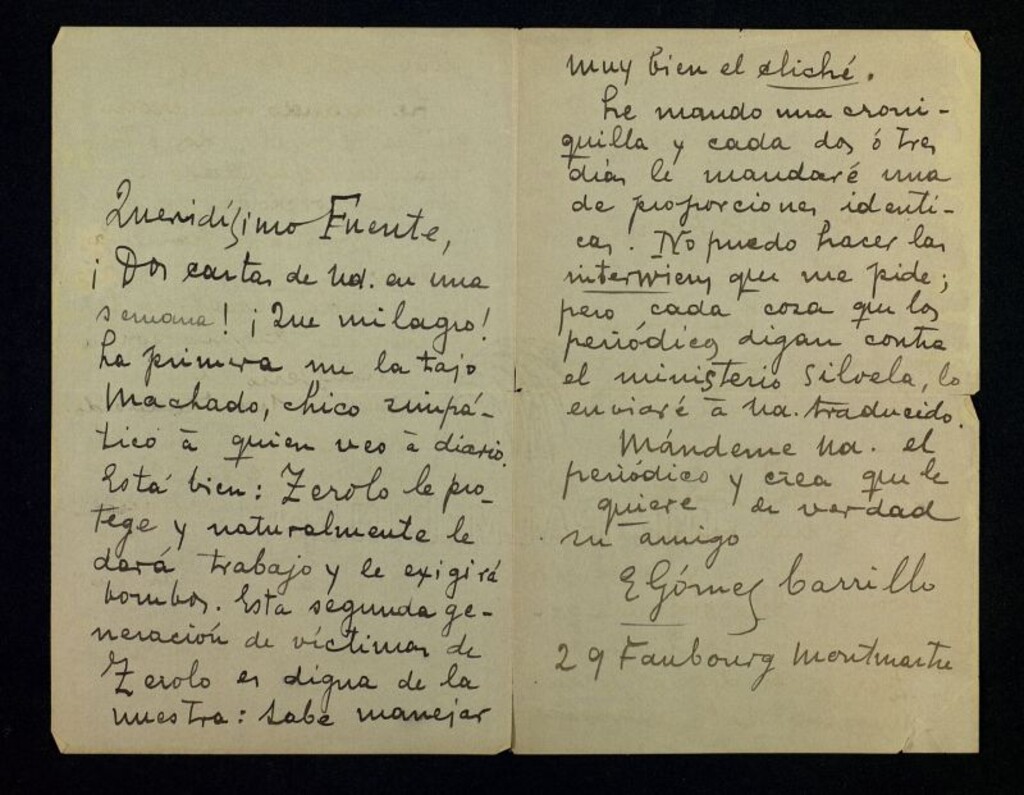 Queridísimo Fuente,
¡Dos cartas de Ud. en una
semana! ¡Que milagro!
La primera me la trajo
Machado, chico simpá-
tico á quien veo á diario.
Está bien: Zerolo le pro-
tege y naturalmente le
dará trabajo y le exigirá
bombos. Esta segunda ge-
neración de víctimas de
Zerolo es digna de la
nuestra: sabe manejar
muy bien el cliché.
Le mando una croni-
quilla y cada dos ó tres
días le mandaré una
de proporciones identi-
cas. No puedo hacer las
interwiews que me pide;
pero cada cosa que los
periódicos digan contra
el ministerio Silvela, lo
enviaré á Ud. traducido.
Mándeme Ud. el
periódico y crea que le
quiere de verdad
su amigo
E Gómez Carrillo
29 Faubourg Montmartre